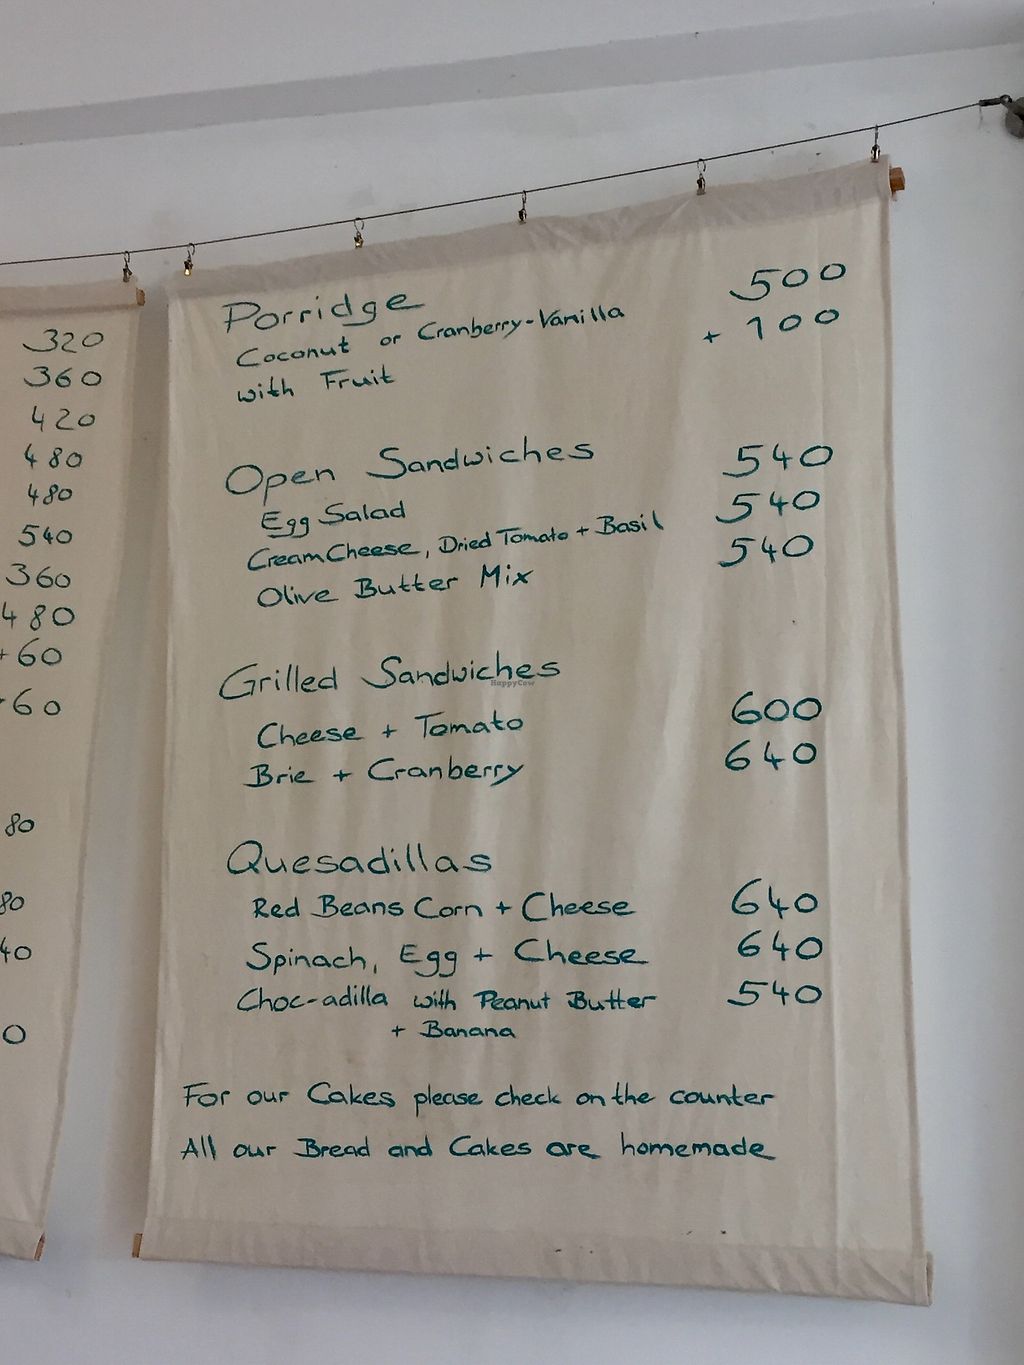 320
360
420
480
480
540
360
480
+60
+60
80
80
40
0
Porridge
Coconut or Cranberry-Vanilla 500
with Fruit + 100
Open Sandwiches
Egg Salad 540
Cream Cheese, Dried Tomato + Basil 540
Olive Butter Mix 540
Grilled Sandwiches
HappyCow
Cheese + Tomato 600
Brie + Cranberry 640
Quesadillas
Red Beans Corn + Cheese 640
Spinach, Egg + Cheese 640
Choc-adilla with Peanut Butter 540
+ Banana
For our Cakes please check on the counter
All our Bread and Cakes are homemade